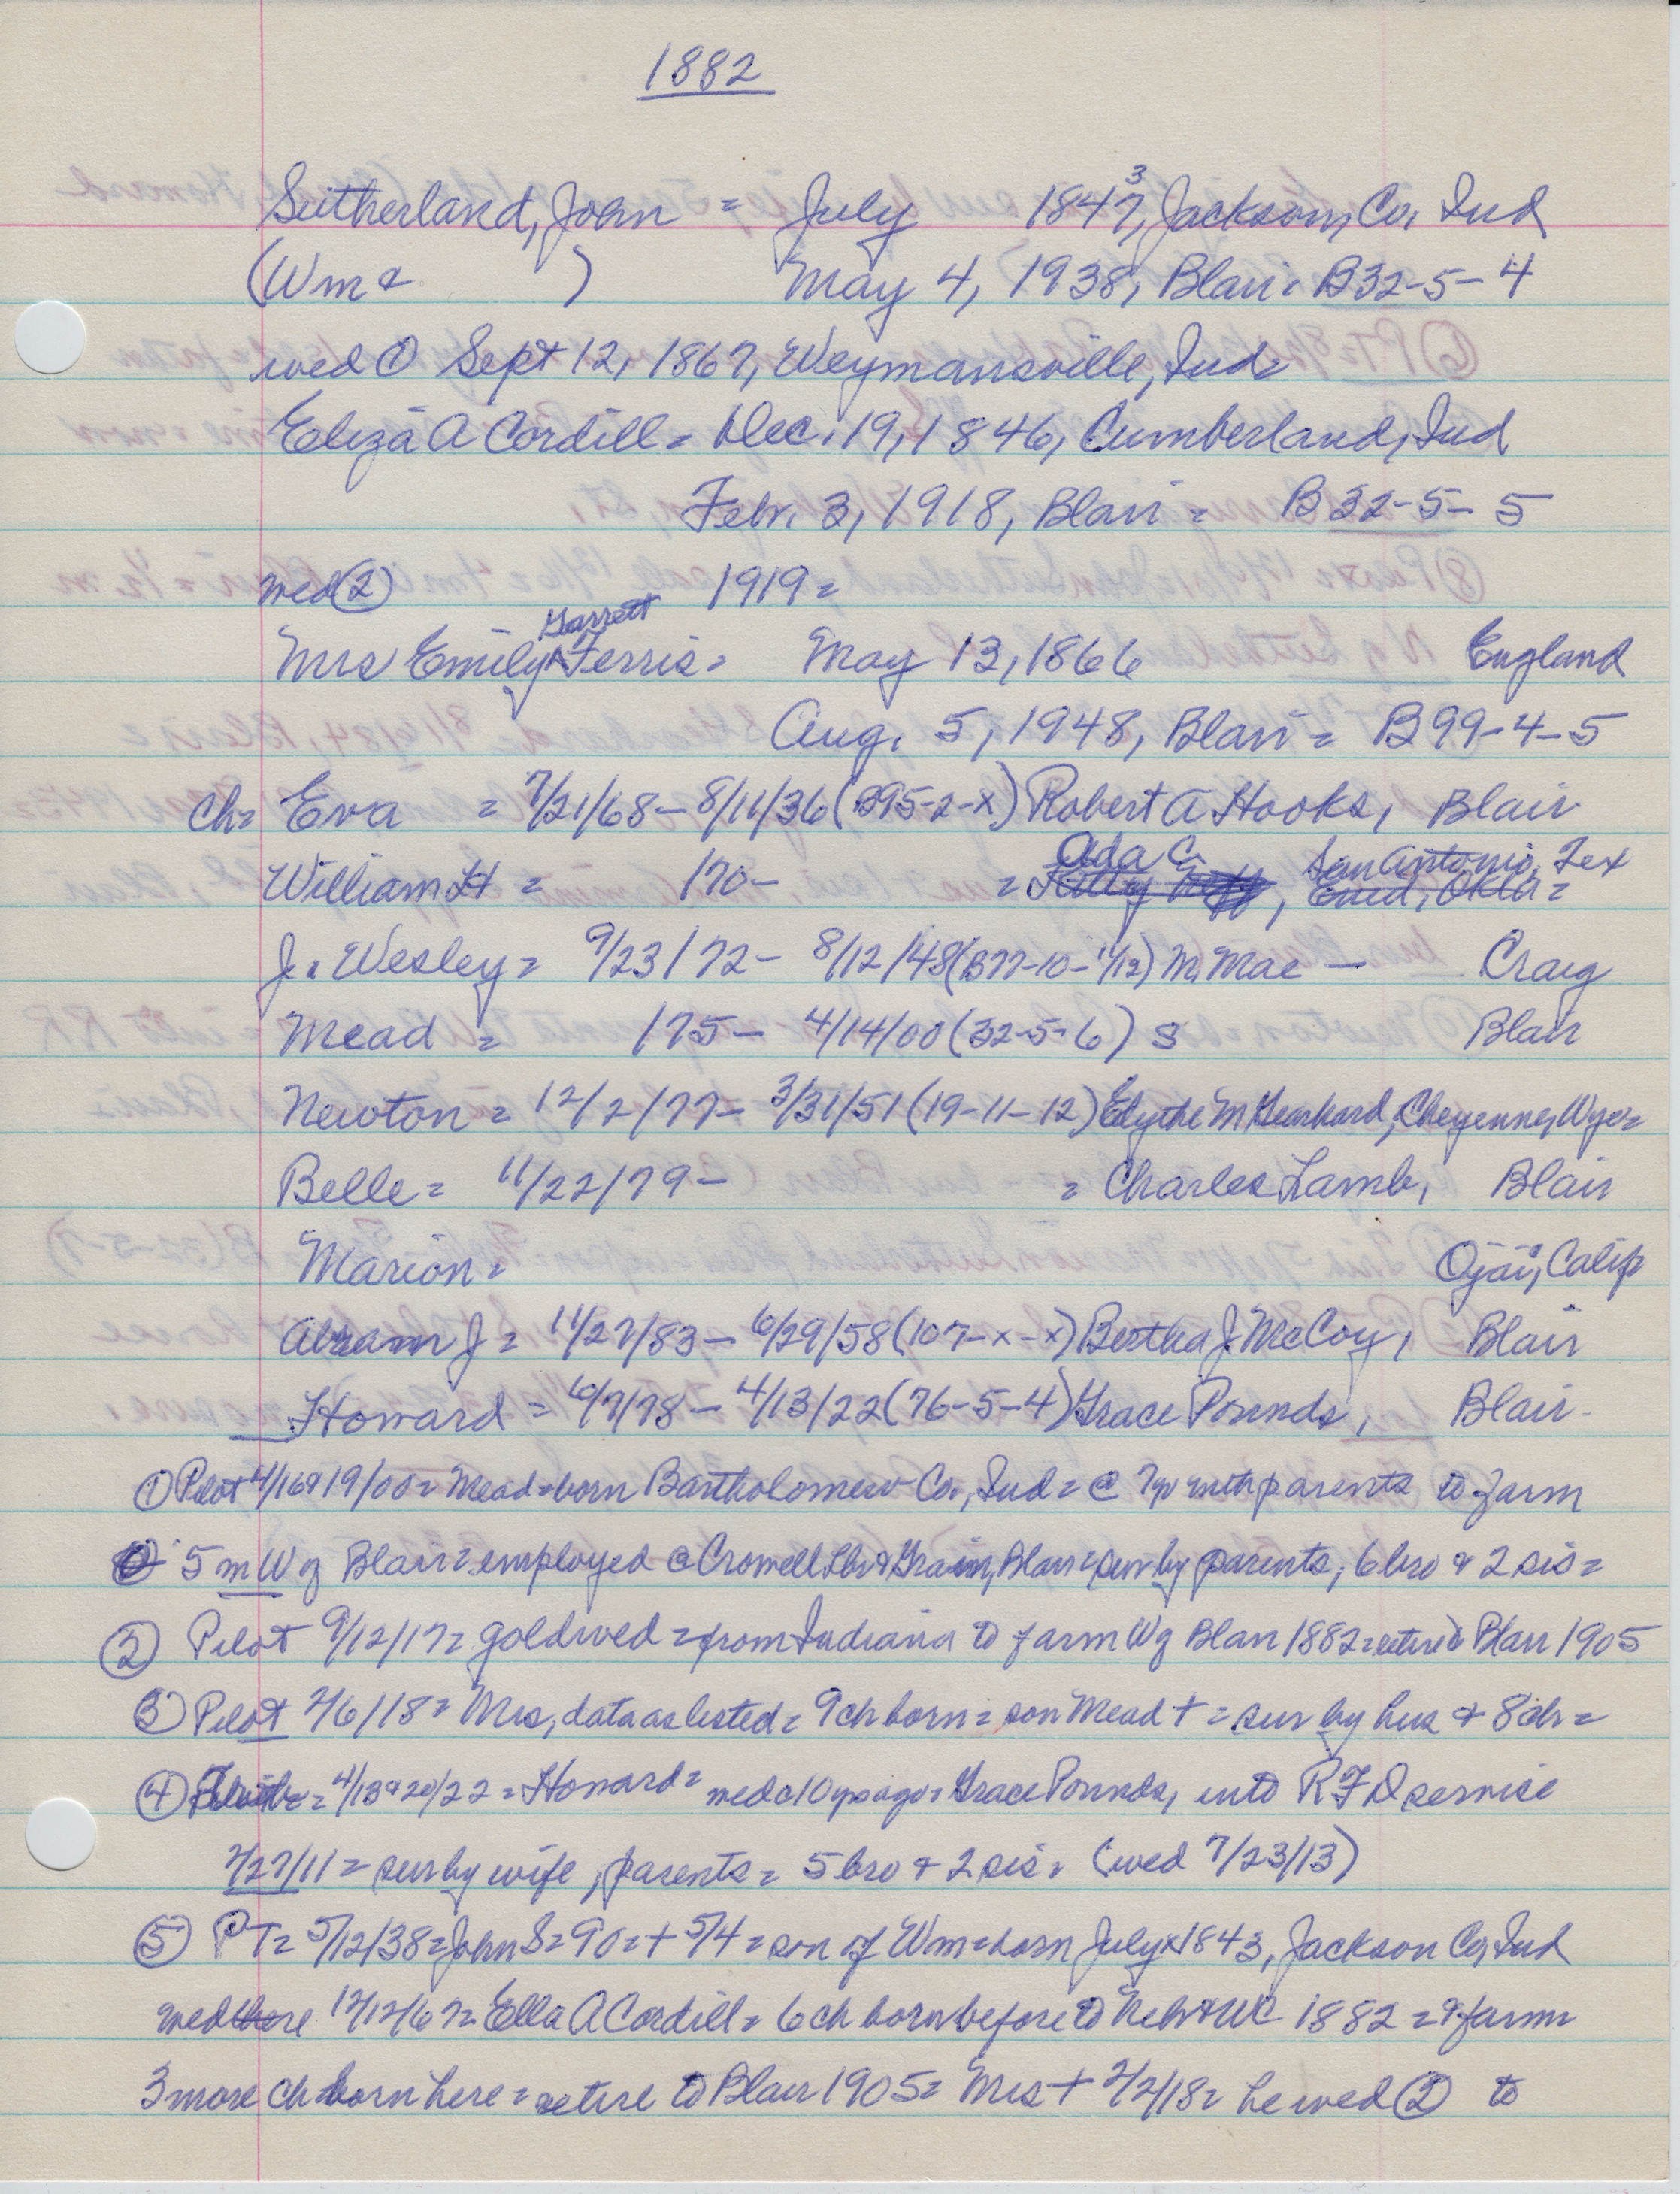 1882
Sutherland, John = July 1847, 3 Jackson, Co. Ind
(Wm & ) May 4, 1938, Blair = B32-5-4
wed ① Sept 12, 1867, Weymansville, Ind =
Eliza A Cordill = Dec. 19, 1846, Cumberland, Ind
Febr. 3, 1918, Blair = B 32-5-5
wed ② 1919 =
Garrett
Mrs Emily ^ Ferris = May 13, 1866 England
Aug. 5, 1948, Blair = B99-4-5
Ch = Eva = 7/21/68 - 8/11/36 (B95-2-x) Robert A Hooks, Blair
Ada C, San Antonio, Tex
William H = /70 - = , Enid, Okla =
J. Wesley = 9/23/72 - 8/12/48 (B77-10-11/12) M. Mae — Craig
Mead = /75 - 4/14/00 (32-5-6) S Blair
Newton = 12/2/77 - 3/31/51 (19-11-12) Edythe M Gearhard, Cheyenne, Wyo =
Belle = 11/22/79 - = Charles Lamb, Blair
Marion = Ojai, Calif
Abram J = 11/27/83 - 6/29/58 (107-x-x) Bertha J. McCoy, Blair
Howard = 6/7/78 - 4/13/22 (76-5-4) Grace Pounds, Blair
① Pilot 4/16 & 19/00 = Mead = born Bartholomew Co., Ind = @ 7yr with parents to farm
5 m W of Blair = employed @ Crowell Lbr & Grain, Blair = sur by parents, 6 bro & 2 sis =
② Pilot 9/12/17 = gold wed = from Indiana to farm W of Blair 1882 = retired Blair 1905
③ Pilot 2/6/18 = Mrs, data as listed = 9 ch born = son Mead + = sur by hus & 8 ch =
④ = 4/13 & 20/22 = Howard = wed c 10 yrs ago = Grace Pounds, into RFD service
2/27/11 = sur by wife, parents = 5 bro & 2 sis. (wed 7/23/13)
⑤ PT = 5/12/38 = John S = 90 = + 5/4 = son of Wm = born July x 1843, Jackson Co, Ind
wed there 12/12/67 = Ella A Cordill = 6 ch born before to Nebr & WC 1882 = & farm
3 more ch born here = retire to Blair 1905 = Mrs + 2/2/18 = he wed ② to